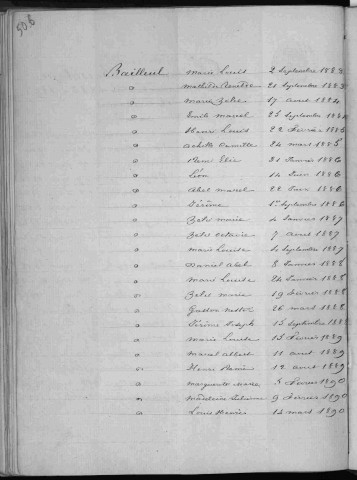 508
Bailleul Marie Louis 2 Septembre 1883
o Mathilde 21 Septembre 1883
o Marie Zélie 17 avril 1884
o Emile Marcel 25 Septembre 1884
o Henri Louis 22 Février 1885
o Achille Camille 24 mars 1885
o Elie 31 Janvier 1886
o Léon 14 Juin 1886
o Abel Marcel 22 Juin 1886
o Jérôme 1er Septembre 1886
o Zélie Marie 4 Janvier 1887
o Zélie Octavie 7 avril 1887
o Marie Louise 4 Septembre 1887
o Daniel Abel 8 Janvier 1888
o Marie Louise 24 Janvier 1888
o Zélie Marie 19 Février 1888
o Gaston Nestor 26 mars 1888
o Jérôme Joseph 15 Septembre 1888
o Marie Louise 15 Février 1889
o Marcel Albert 11 avril 1889
o Henri 12 avril 1889
o Marguerite 3 Février 1890
o Madeleine 9 Février 1890
o Louis 14 mars 1890